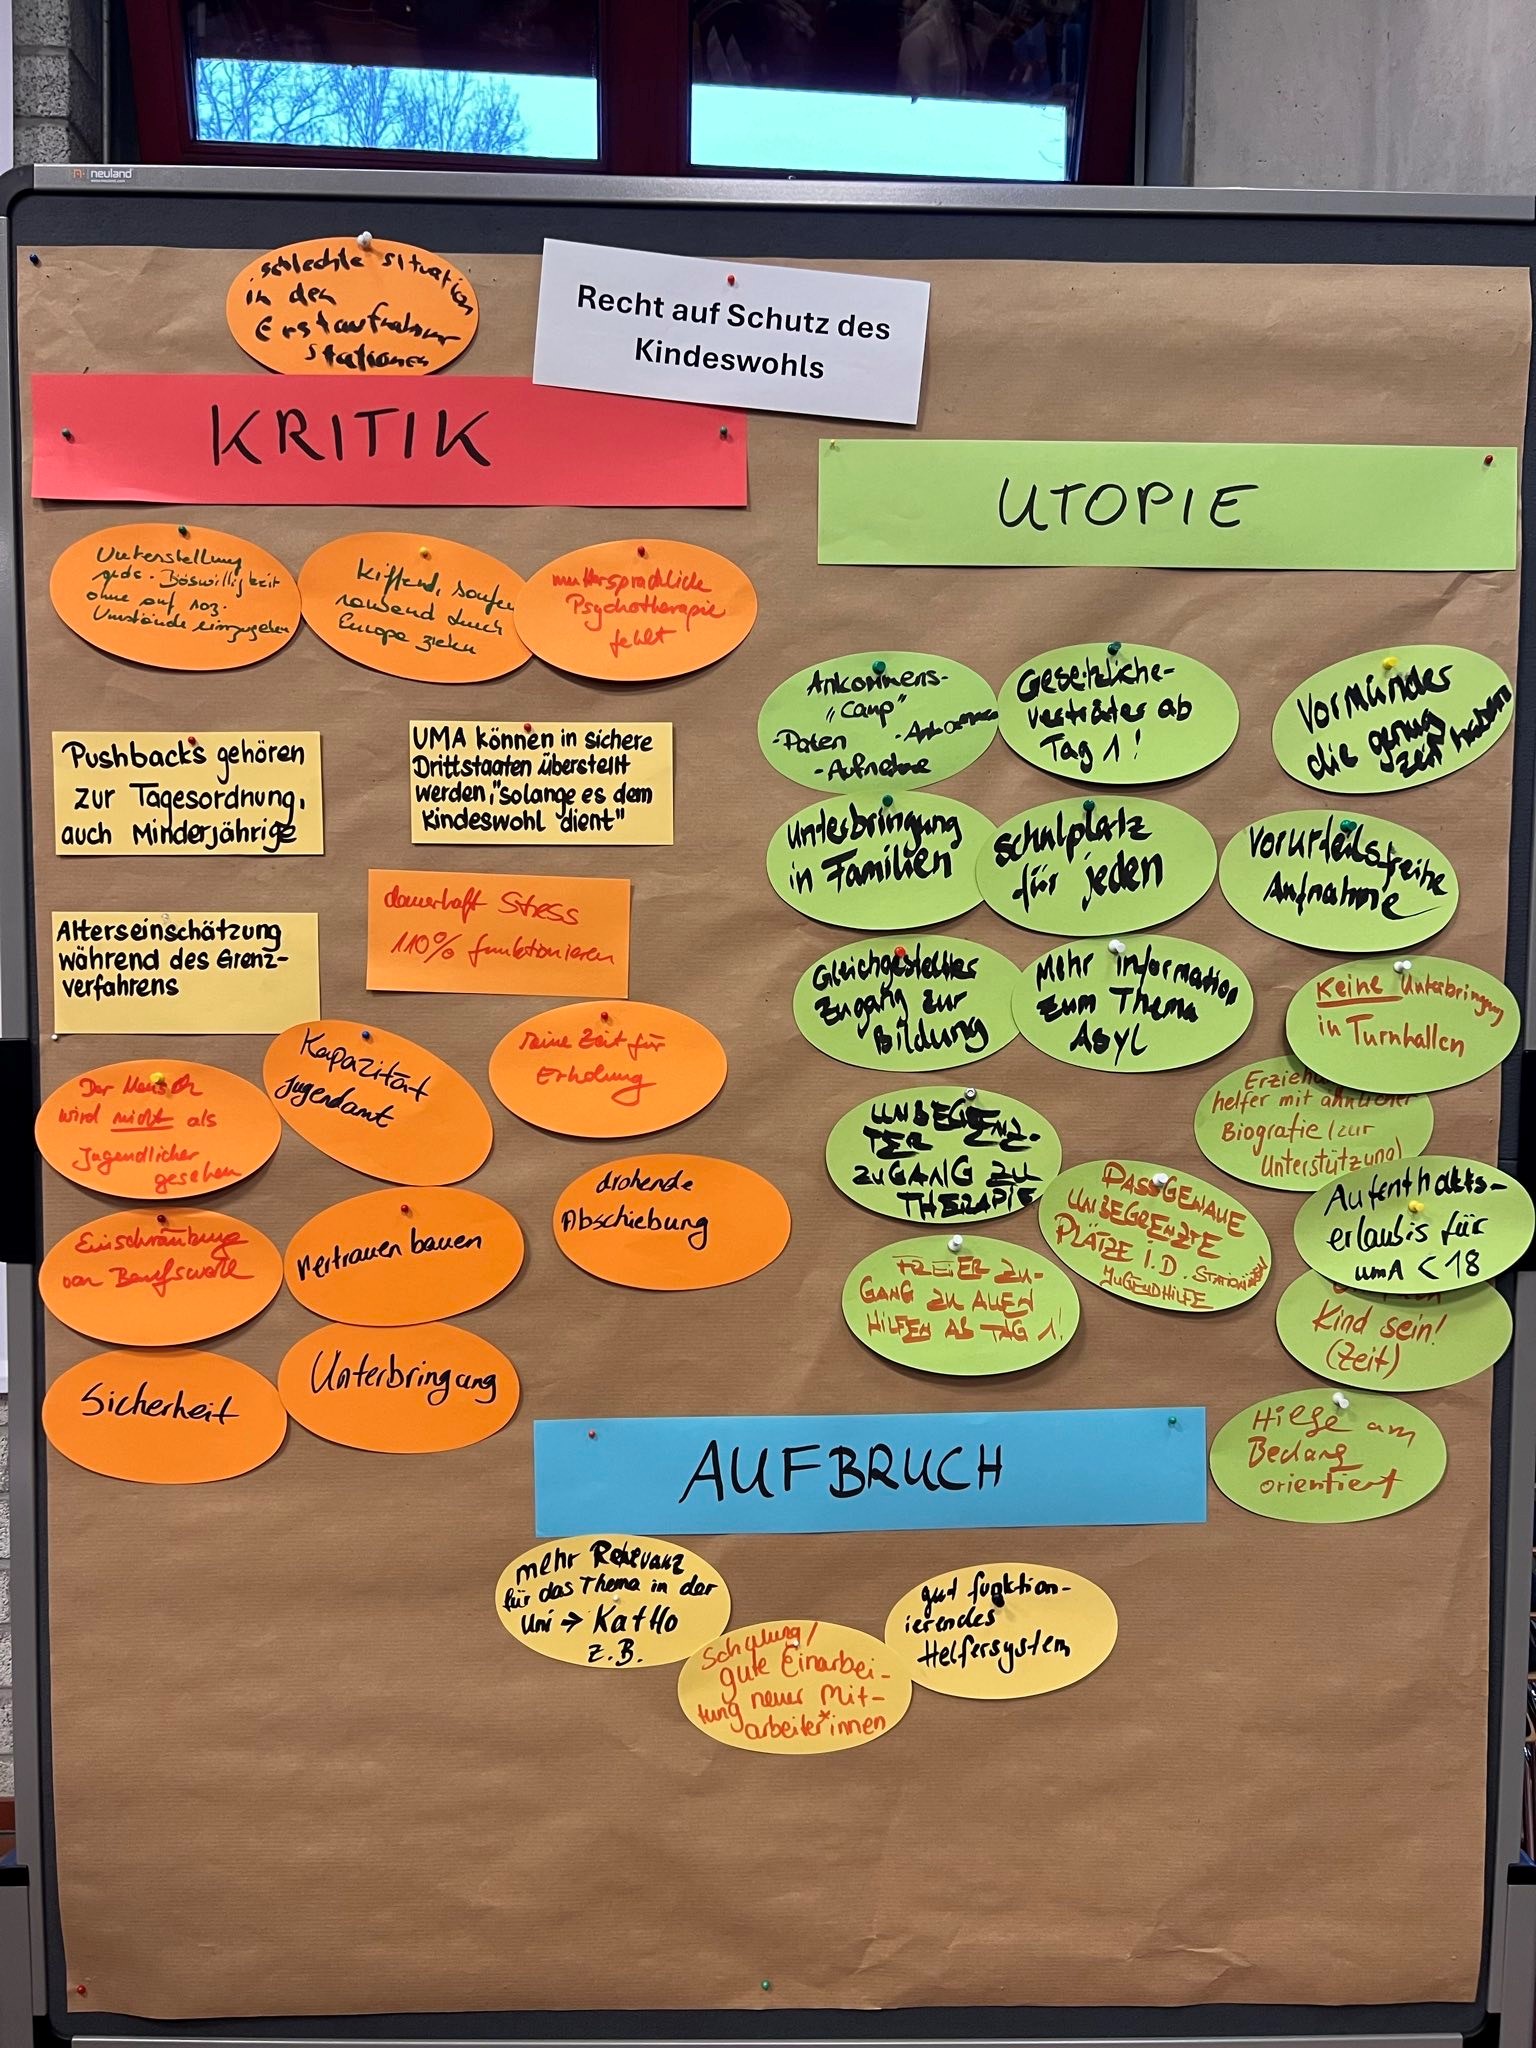 neuland
schlechte Situation
in den
Erstaufnahme
stationen
Recht auf Schutz des
Kindeswohls
KRITIK
Unterstellung
Böswilligkeit
ohne auf soz.
Umstände einzugehen
kiffend, saufen
raubend durch
Europa ziehn
muttersprachliche
Psychotherapie
fehlt
Pushbacks gehören
zur Tagesordnung,
auch Minderjährige
UMA können in sichere
Drittstaaten überstellt
werden, "solange es dem
Kindeswohl dient"
Alterseinschätzung
während des Grenz-
verfahrens
dauerhaft Stress
110% funktionieren
Der Mensch
wird nicht als
Jugendlicher
gesehen
Kapazität
Jugendamt
keine Zeit für
Erholung
Einschränkung
von Berufswahl
vertrauen bauen
drohende
Abschiebung
Sicherheit
Unterbringung
UTOPIE
Ankommens-
"Camp"
-Paten
-Aufnahme
Gesetzliche-
verträter ab
Tag 1!
Vormünder
die genug
zeit haben
Unterbringung
in Familien
schulplatz
für jeden
Vorurteilsfreihe
Aufnahme
Gleichgestellter
Zugang zur
Bildung
Mehr information
zum Thema
Asyl
Keine Unterbringung
in Turnhallen
Erziehu
helfer mit ähnlicher
Biografie (zur
Unterstützung)
UNBEGRENZ-
TER
ZUGANG ZU
THERAPIE
PASSGENAUE
UNBEGRENZTE
PLÄTZE I.D. STATIONÄREN
JUGENDHILFE
Aufenthalts-
erlaubis für
umA < 18
FREIER ZU-
GANG ZU ALLEN
HILFEN AB TAG 1!
Kind sein!
(Zeit)
Hilfe am
Bedarf
orientiert
AUFBRUCH
mehr Relevanz
für das Thema in der
Uni → KatHo
z.B.
Schulung/
gute Einarbei-
tung neuer Mit-
arbeiter*innen
gut funktion-
ierendes
Helfersystem